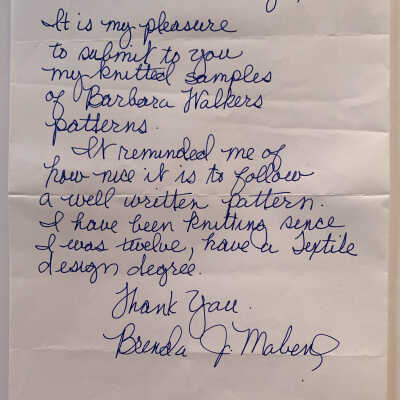 It is my pleasure
to submit to you
my knitted samples
of Barbara Walkers
patterns.
It reminded me of
how nice it is to follow
a well written pattern.
I have been knitting sence
I was twelve, have a Textile
design degree.
Thank You.
Brenda J. Maben